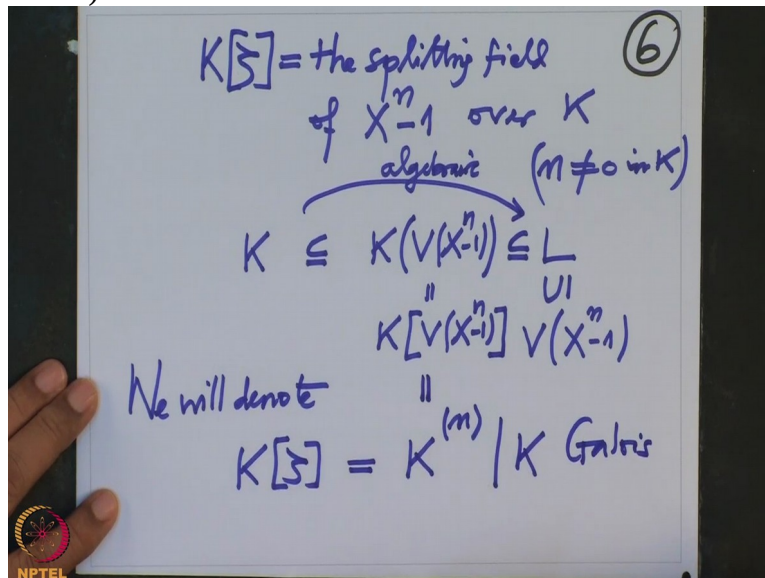 K[ζ] = the splitting field
⑥
of Xⁿ-1 over K
algebraic (n ≠ 0 in K)
K ⊆ K(V(Xⁿ-1)) ⊆ L
|| U|
K[V(Xⁿ-1)] V(Xⁿ-1)
We will denote ||
K[ζ] = K⁽ⁿ⁾ | K Galois
NPTEL